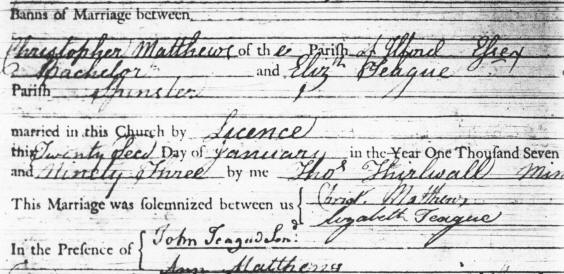 Banns of Marriage between
Christopher Matthews of the Parish of Ilford Essex
a Bachelor and Elizth Teague
Parish Spinster
married in this Church by Licence
this Twenty Secd Day of January in the Year One Thousand Seven
and Ninety Three by me Thos Thirlwall Min
This Marriage was solemnized between us { Christr Matthews
Elizabeth Teague
In the Presence of { John Teague Senr
Ann Matthews